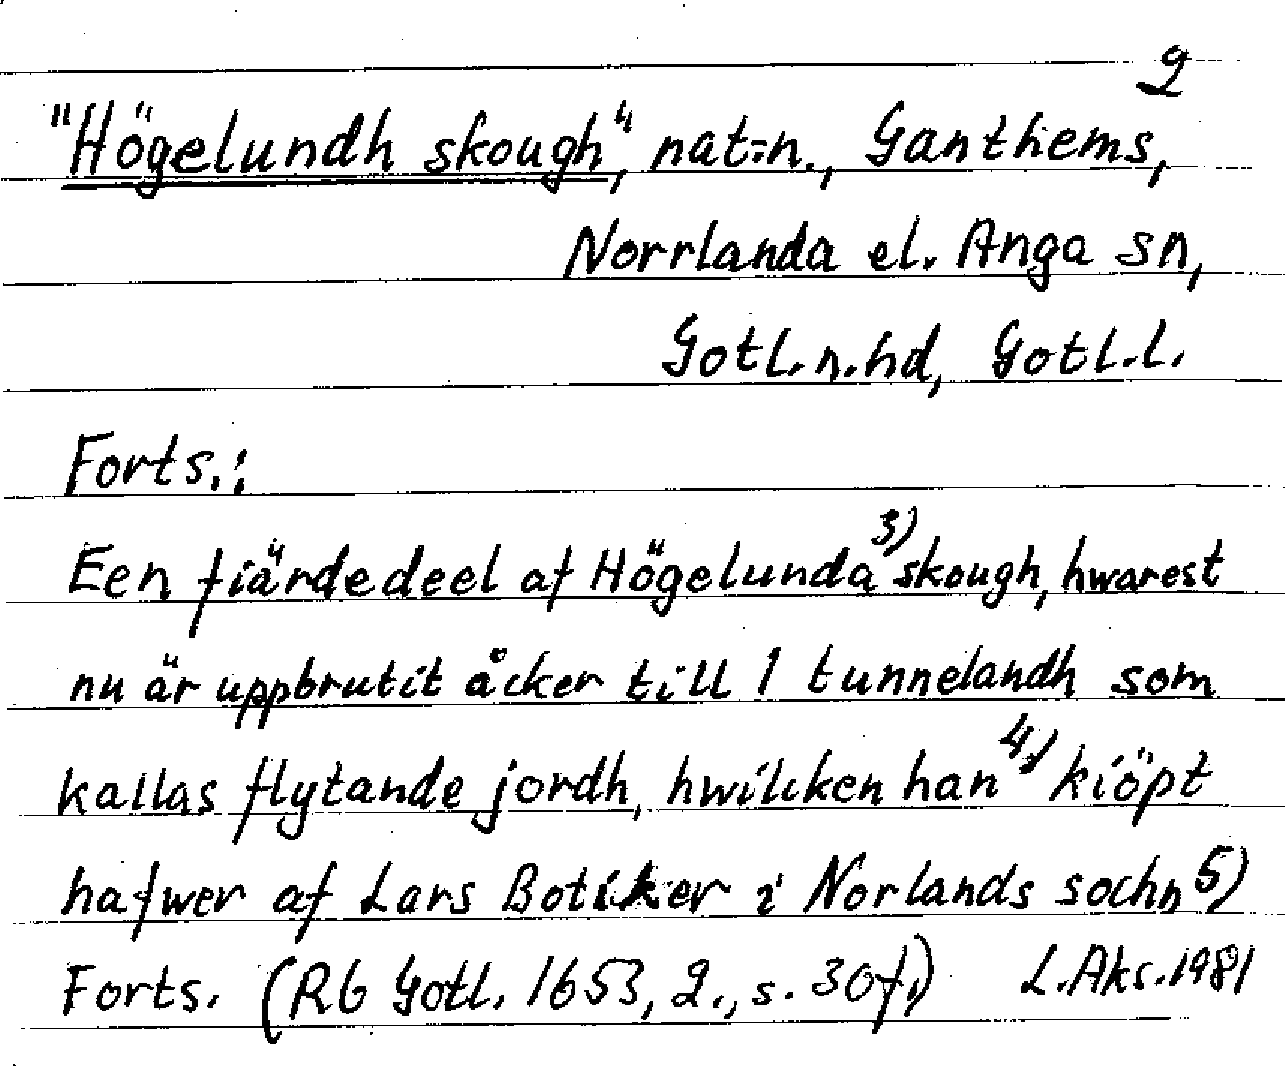 2
"Högelundh skough", nat=n., Ganthems,
Norrlanda el. Anga sn,
Gotl.n.hd, Gotl.l.
Forts.:
Een fiärdedeel af Högelunda 3) skough, hwarest
nu är uppbrutit åcker till 1 tunnelandh som
kallas flytande jordh, hwilcken han 4) kiöpt
hafwer af Lars Botiker i Norlands sochn 5)
Forts. (Rb Gotl. 1653, 2., s. 30f.) L.Aks.1981